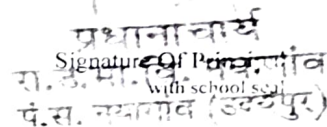 प्रधानाचार्य
Signature Of Principal
रा. उ. मा. वि.
with school seal
पं.स. नयागांव (उदयपुर)